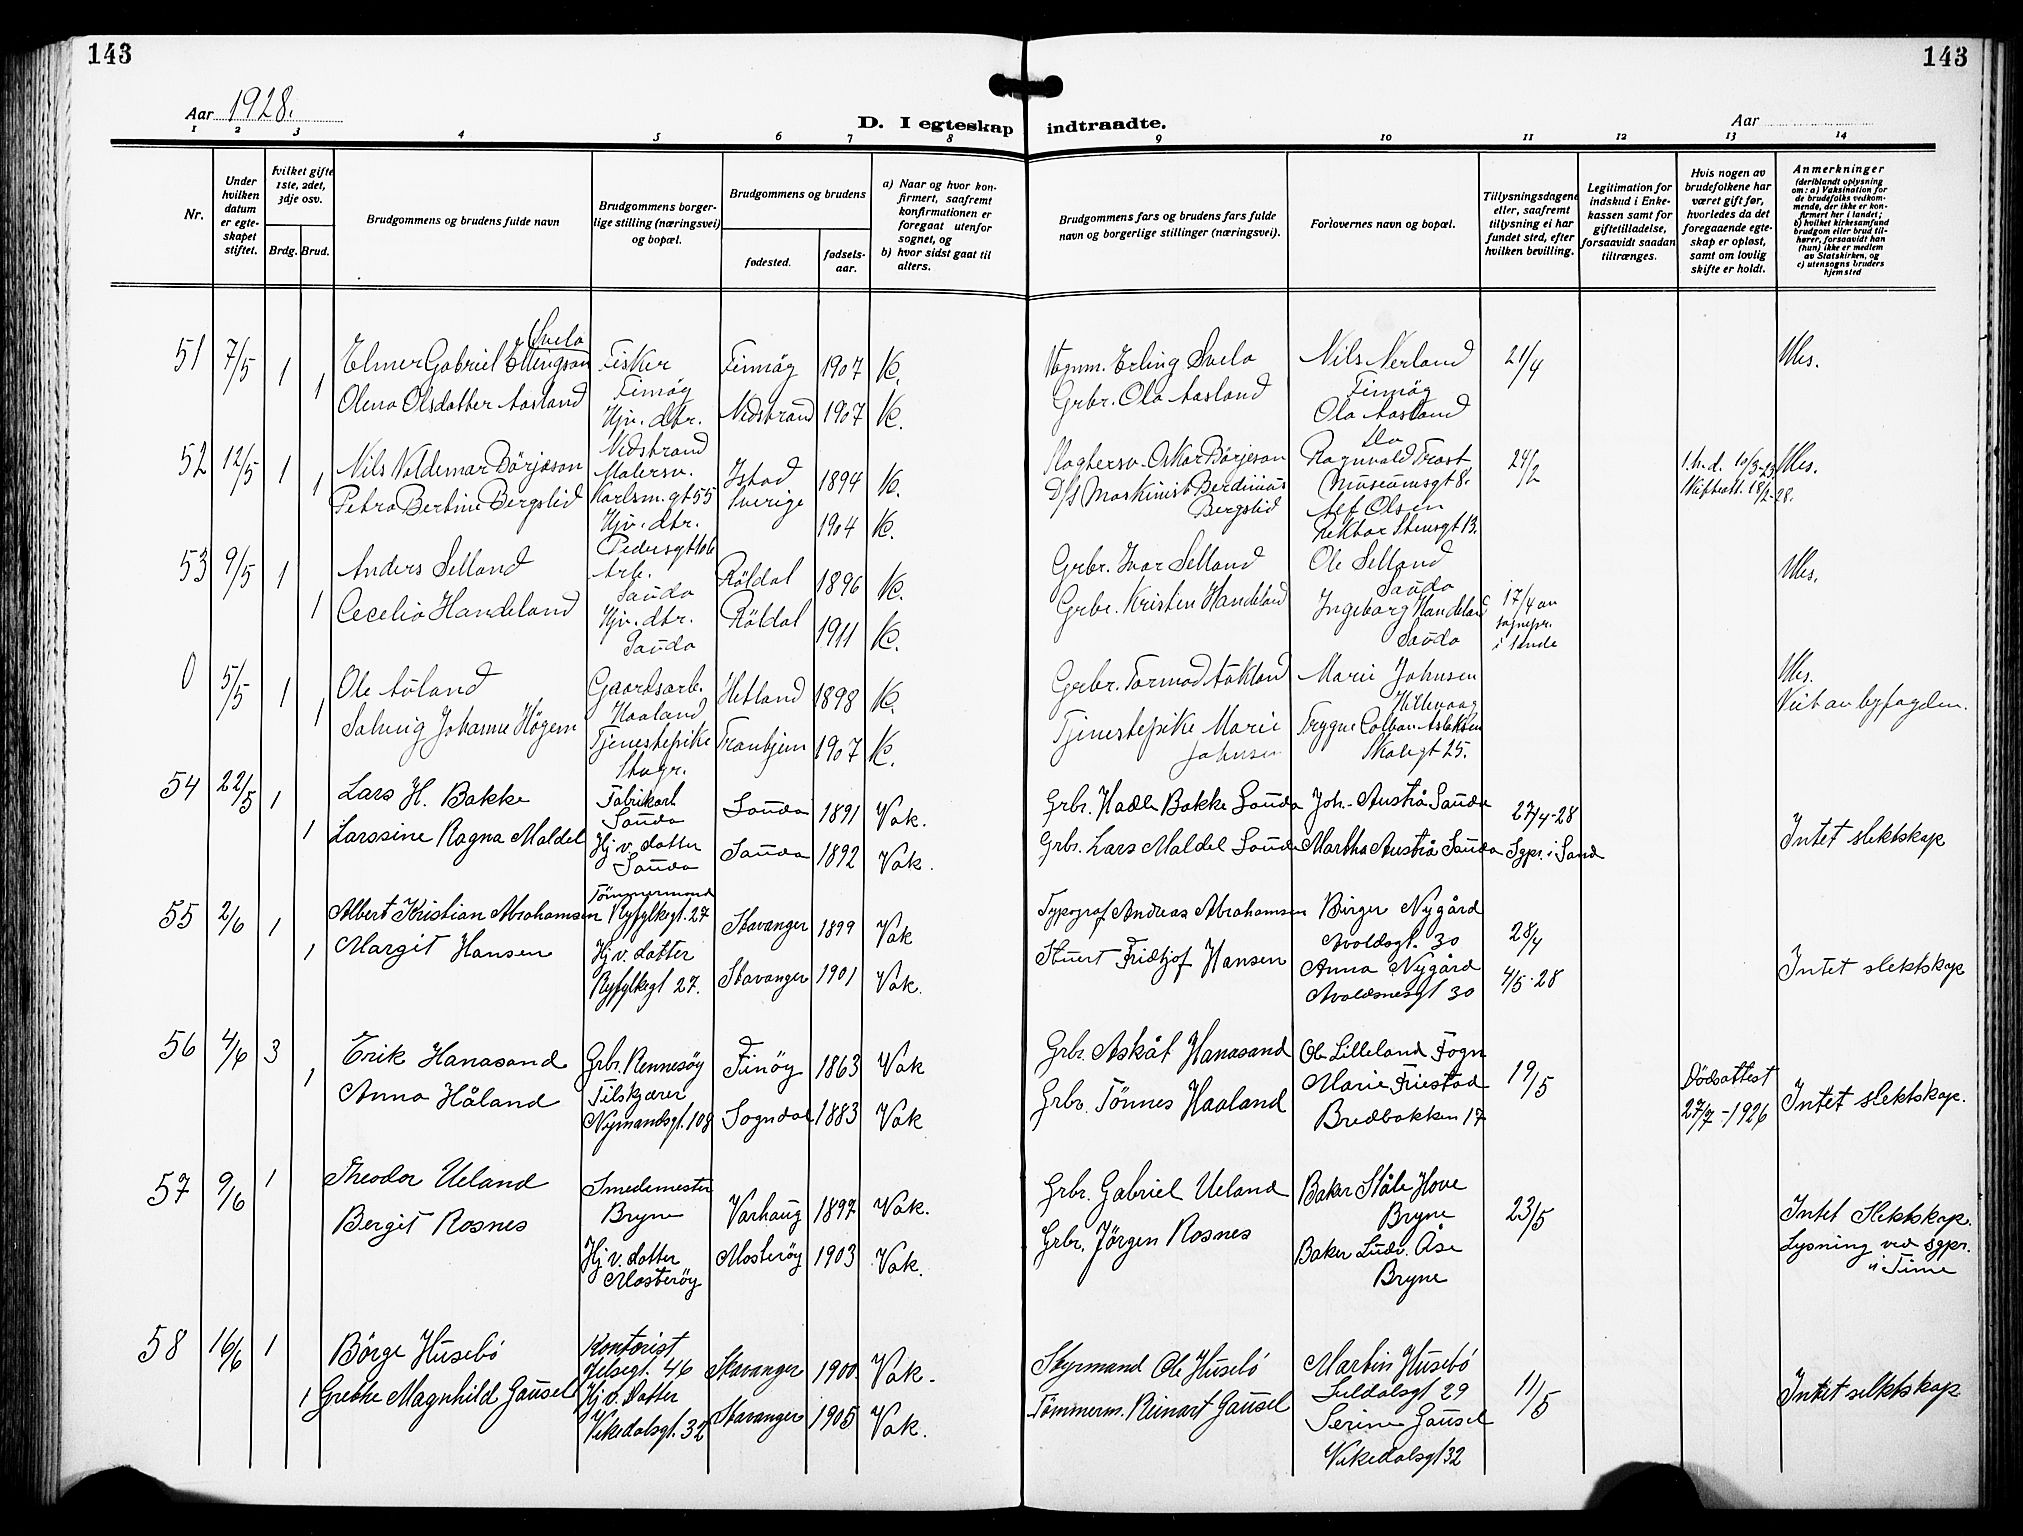 143
143
Aar 1928.
D. I egteskap indtraadte.
Aar
1 2 3 4 5 6 7 8 9 10 11 12 13 14
Nr.
Under hvilken datum er egteskapet stiftet.
hvilket gifte 1ste, 2det, 3dje osv.
Brdg. Brud.
Brudgommens og brudens fulde navn
Brudgommens borgerlige stilling (næringsvei) og bopæl.
Brudgommens og brudens
fødested.
fødselsaar.
a) Naar og hvor konfirmert, saafremt konfirmationen er foregaat utenfor sognet, og
b) hvor sidst gaat til alters.
Brudgommens fars og brudens fars fulde navn og borgerlige stillinger (næringsvei).
Forlovernes navn og bopæl.
Tillysningsdagene eller, saafremt tillysning ei har fundet sted, efter hvilken bevilling.
Legitimation for indskud i Enkekassen samt for giftetilladelse, forsaavidt saadan tiltrænges.
Hvis nogen av brudefolkene har været gift før, hvorledes da det foregaaende egteskap er opløst, samt om lovlig skifte er holdt.
Anmerkninger
(deriblandt oplysning om: a) Vaksination for de brudefolks vedkommende, der ikke er konfirmert her i landet; b) hvilket kirkesamfund brudgom eller brud tilhører, forsaavidt han (hun) ikke er medlem av Statskirken, og c) utensogns bruders hjemsted
51 7/5 1 Elmer Gabriel Ellingsen Svela Fisker Finnøy Finnøy 1907 K. Vognm. Erling Svela Nils Nerland Finnøy 21/4 Ubs.
1 Olena Olsdatter Aasland Hjv. dtr. Nedstrand Nedstrand 1907 K. Grbr. Ola Aasland Ola Aasland Do
52 12/5 1 Nils Valdemar Börjeson Malersv. Karlsm.gt 55 Istad Sverige 1894 K. Slagtersv. Oskar Börjeson Ragnvald Trost Museumsgt 8. 24/2 1.h.d. 10/3-23. Skifteatt. 18/2-28. Ubs.
1 Petra Bertine Bergslid Hjv. dtr. Pedersgt 106 1904 K. D/S Maskinist Berdinius Bergslid Alf Olsen Rektor Stensgt 13.
53 9/5 1 Anders Selland Arb. Sauda Röldal 1896 K. Grbr. Ivar Selland Ole Selland Sauda 17/4 av sognepr. i Sande Ubs.
1 Cecelia Handeland Hjv. dtr. Sauda Röldal 1911 K. Grbr. Kristen Handeland Ingeborg Handeland Sauda
0 5/5 1 Ole Auland Gaardsarb. Haaland Hetland 1898 K. Grbr. Tormod Aakland Marie Johnsen Hillevaag Ubs. Viet av byfogden.
1 Solveig Johanne Högem Tjenestepike Stvgr. Trondhjem 1907 K. Tjenestepike Marie Johnsen Trygve Colban Aslaksen Skolegt 25.
54 22/5 1 Lars H. Bakke Fabrikarb Sauda Sauda 1891 Vak. Grbr. Hadle Bakke Sauda Joh. Austrå Sauda 27/4-28
1 Larssine Ragna Maldel Hj v. datter Sauda Sauda 1892 Vak. Grbr. Lars Maldel Sauda Martha Austrå Sauda Sgpr. i Sand Intet slektskap
55 2/6 1 Albert Kristian Abrahamsen Tömmermand Ryfylkegt. 27 Stavanger 1899 Vak Typograf Andreas Abrahamsen Birger Nygård Avaldsgt. 30 28/4
1 Margit Hansen Hj v. datter Ryfylkegt 27. Stavanger 1901 Vak. Stuert Fridtjof Hansen Anna Nygård Avaldsnesgt 30 4/5-28 Intet slektskap
56 4/6 3 Erik Hanasand Grbr. Rennesöy Finöy 1863 Vak Grbr. Askåt Hanasand Ole Lilleland Fogn 19/5 Dödsattest 27/7-1926 Intet slektskap.
1 Anna Håland Tilskjærer Nymandsgt. 108 Sogndal 1883 Vak Grbr. Tönnes Haaland Marie Friestad Bredbakken 17
57 9/6 1 Theodor Ueland Smedemester Bryne Varhaug 1897 Vak. Grbr. Gabriel Ueland Baker Ståle Hove Bryne 23/5 Intet Slektskap.
Bergit Rosnes Hj v. datter Mosteröy Mosteröy 1903 Vak. Grbr. Jörgen Rosnes Baker Ludv. Åse Bryne Lysning ved Sgpr. i Time
58 16/6 1 Börge Husebö Kontorist Jelsegt. 46 Stavanger 1900 Vak. Styrmand Ole Husebö Martin Husebö Suldalsgt 29 11/5 Intet slektskap
1 Grethe Magnhild Gausel Hj v. datter Vikedalsgt. 32 Stavanger 1905 Vak. Tömmerm. Reinart Gausel Serine Gausel Vikedalsgt 32